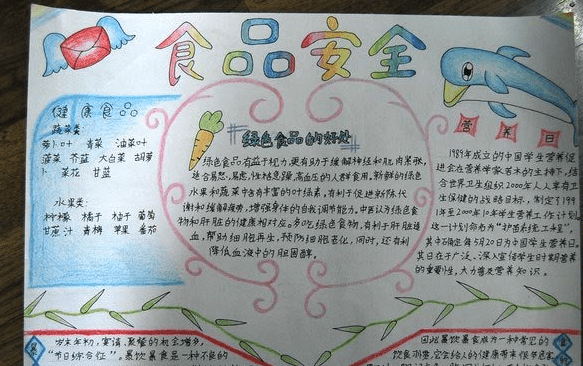 食品安全
健康食品
蔬菜类:
萝卜叶 青菜 油菜叶
菠菜 芥蓝 大白菜 胡萝
卜 菜花 甘蓝
水果类:
柠檬 橘子 柚子 葡萄
甘蔗汁 青梅 苹果 番茄
绿色食品的好处
绿色食品有益于视力,更有助于缓解神经和肌肉紧张,
适合易怒,易虑,性格急躁,高血压的人群食用,新鲜的绿色
水果和蔬菜中含有丰富的叶绿素,有利于促进新陈代
谢和缓解疲劳,增强身体的自我调节能力,中医认为绿色食
物和肝脏的健康相对应。多吃绿色食物,有利于肝脏造
血,帮助细胞再生,预防细胞老化,同时,还有利
降低血液中的胆固醇。
营养日
1989年成立的中国学生营养促
进会在营养学家若木的主持下,结
合世界卫生组织2000年人人享有卫
生保健的战略目标,制定了199
1年至2000年10年学生营养工作计划
这一计划命名为“护苗系统工程”,
其中确定每5月20日为中国学生营养日。
其目在于广泛、深入宣传学生时期营养
的重要性,大力普及营养知识。
岁末年初,宴请、聚餐的机会增多,
“节日综合征”。暴饮暴食是一种不良的
因此暴饮暴食成为一种常见的
饮食
会给人的健康带来很多危害